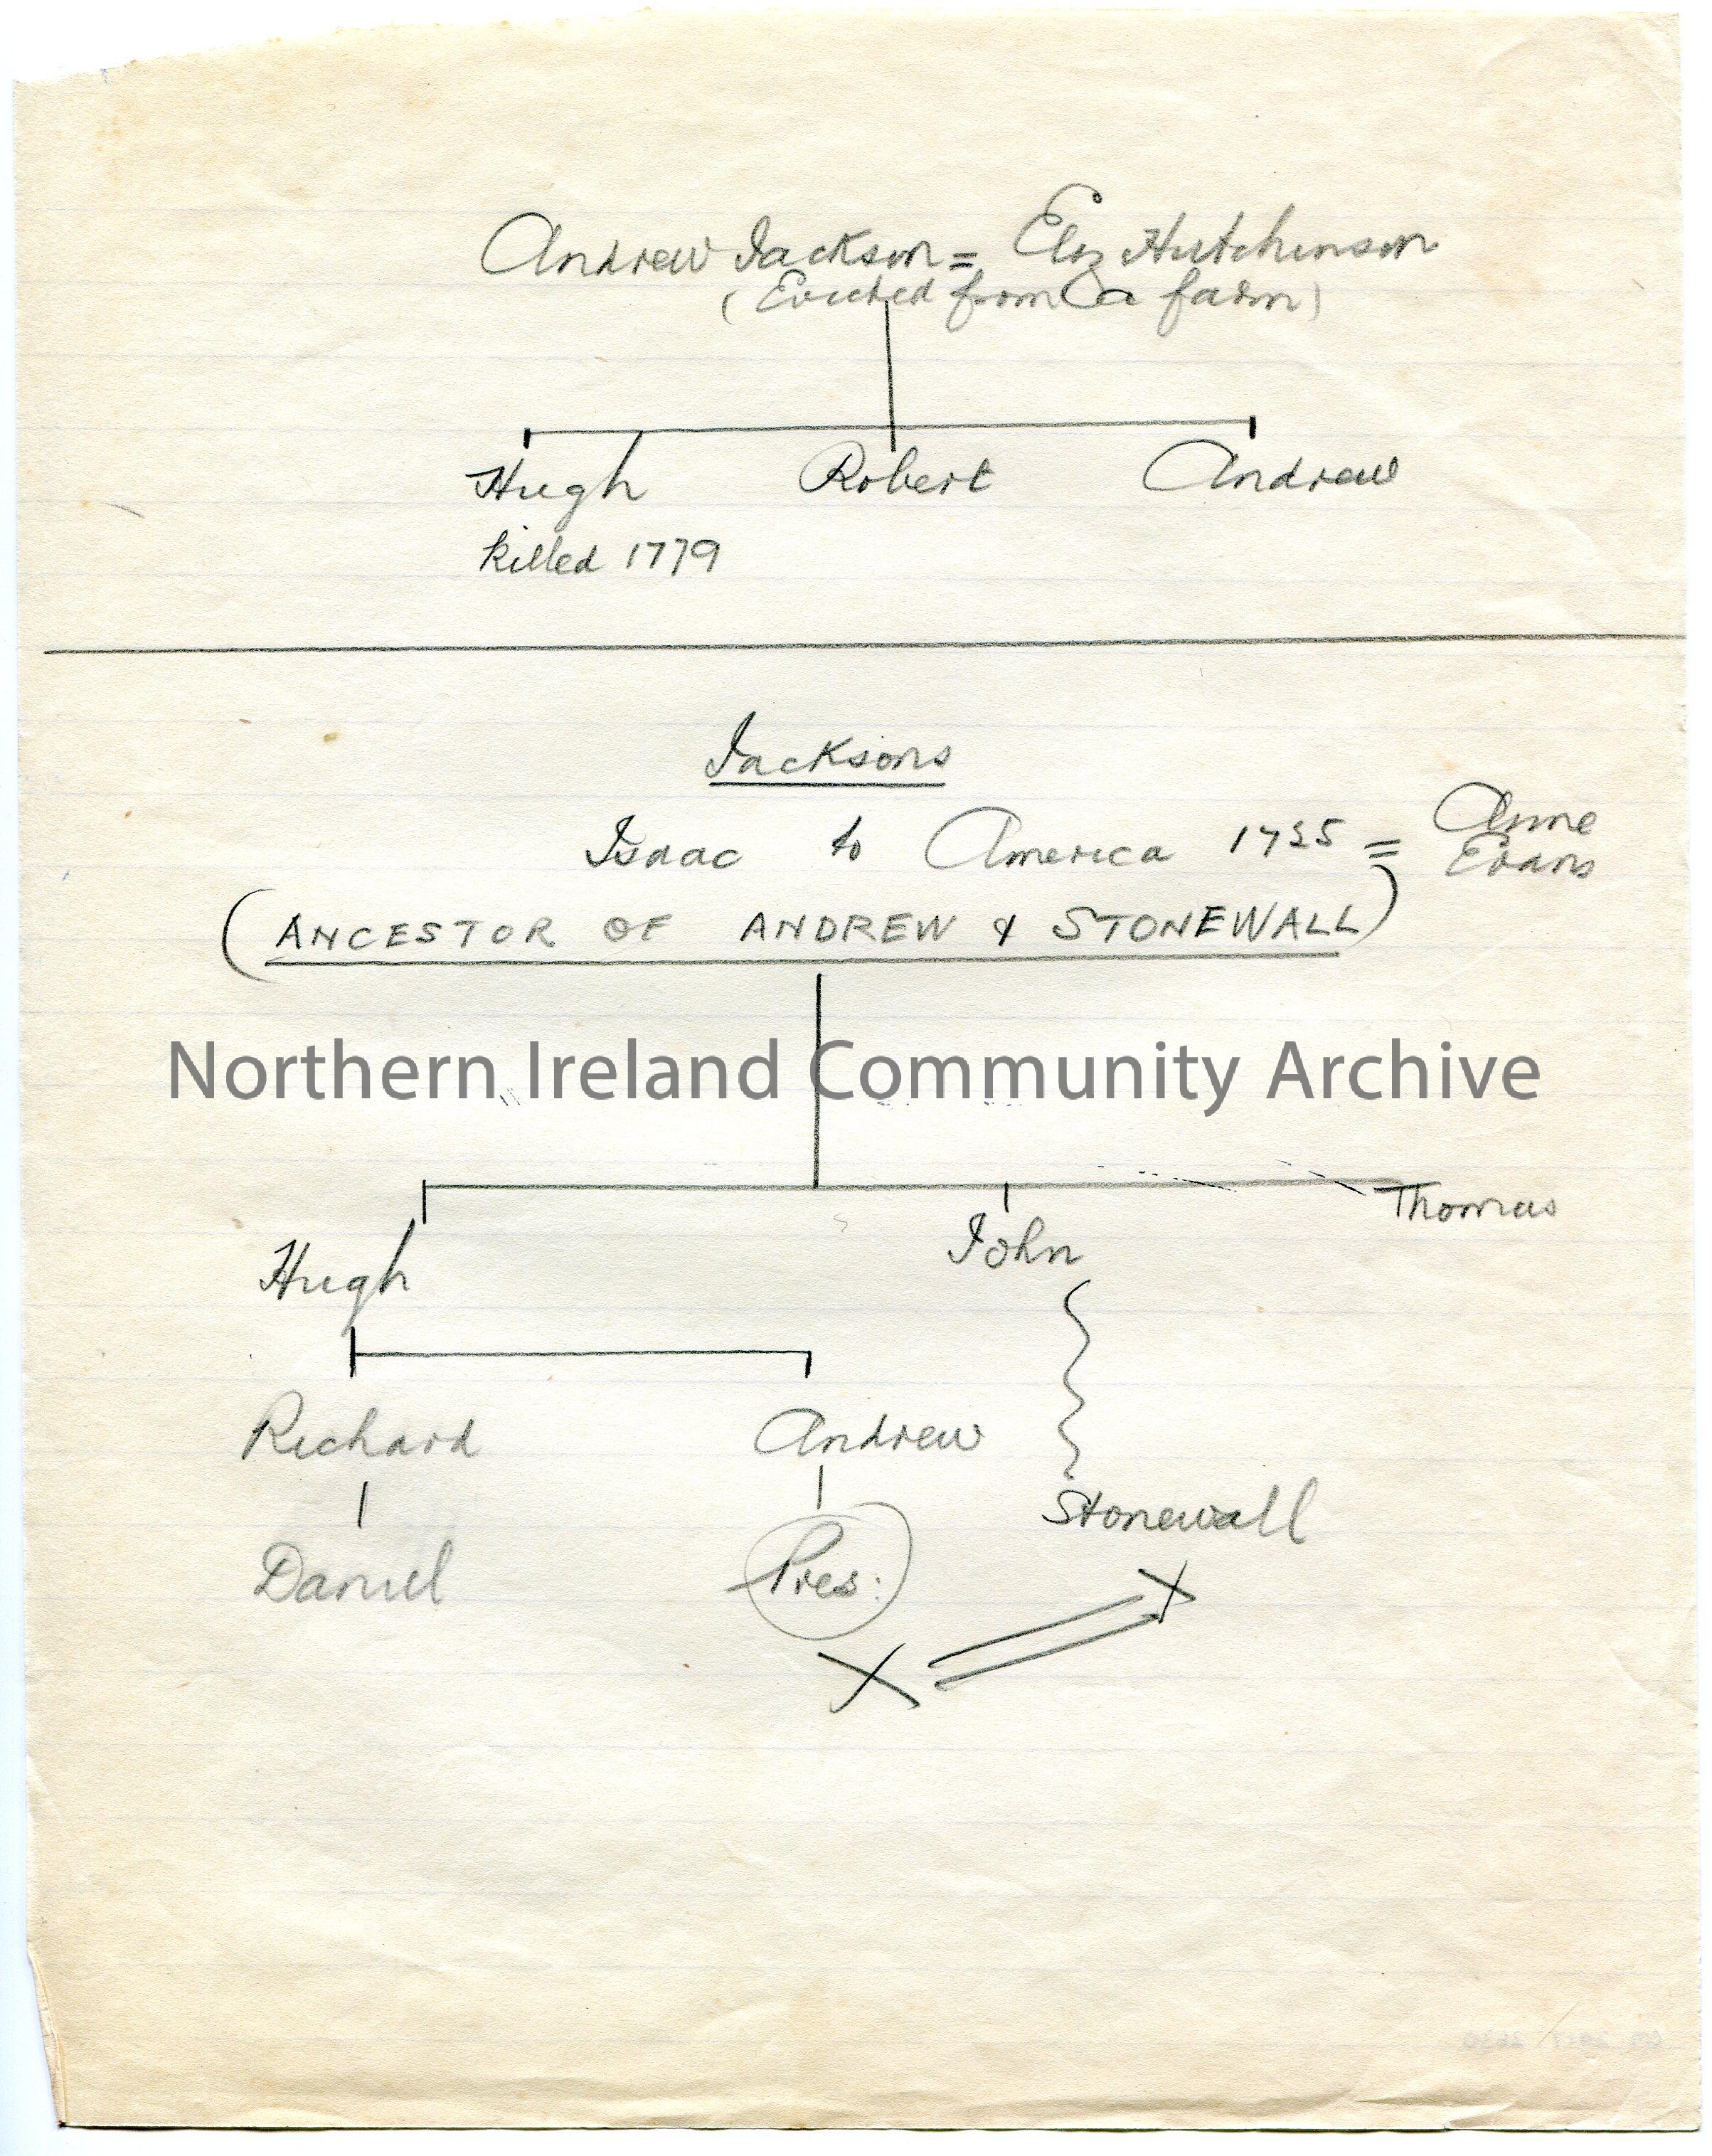 Andrew Jackson = Eliz Hutchinson
(Evicted from a farm)
Hugh Robert Andrew
killed 1779
Jacksons
Isaac to America = Anne Evans
(ANCESTOR OF ANDREW & STONEWALL)
Northern Ireland Community Archive
Hugh John Thomas
Richard Andrew
Stonewall
Daniel Pres:
X = X